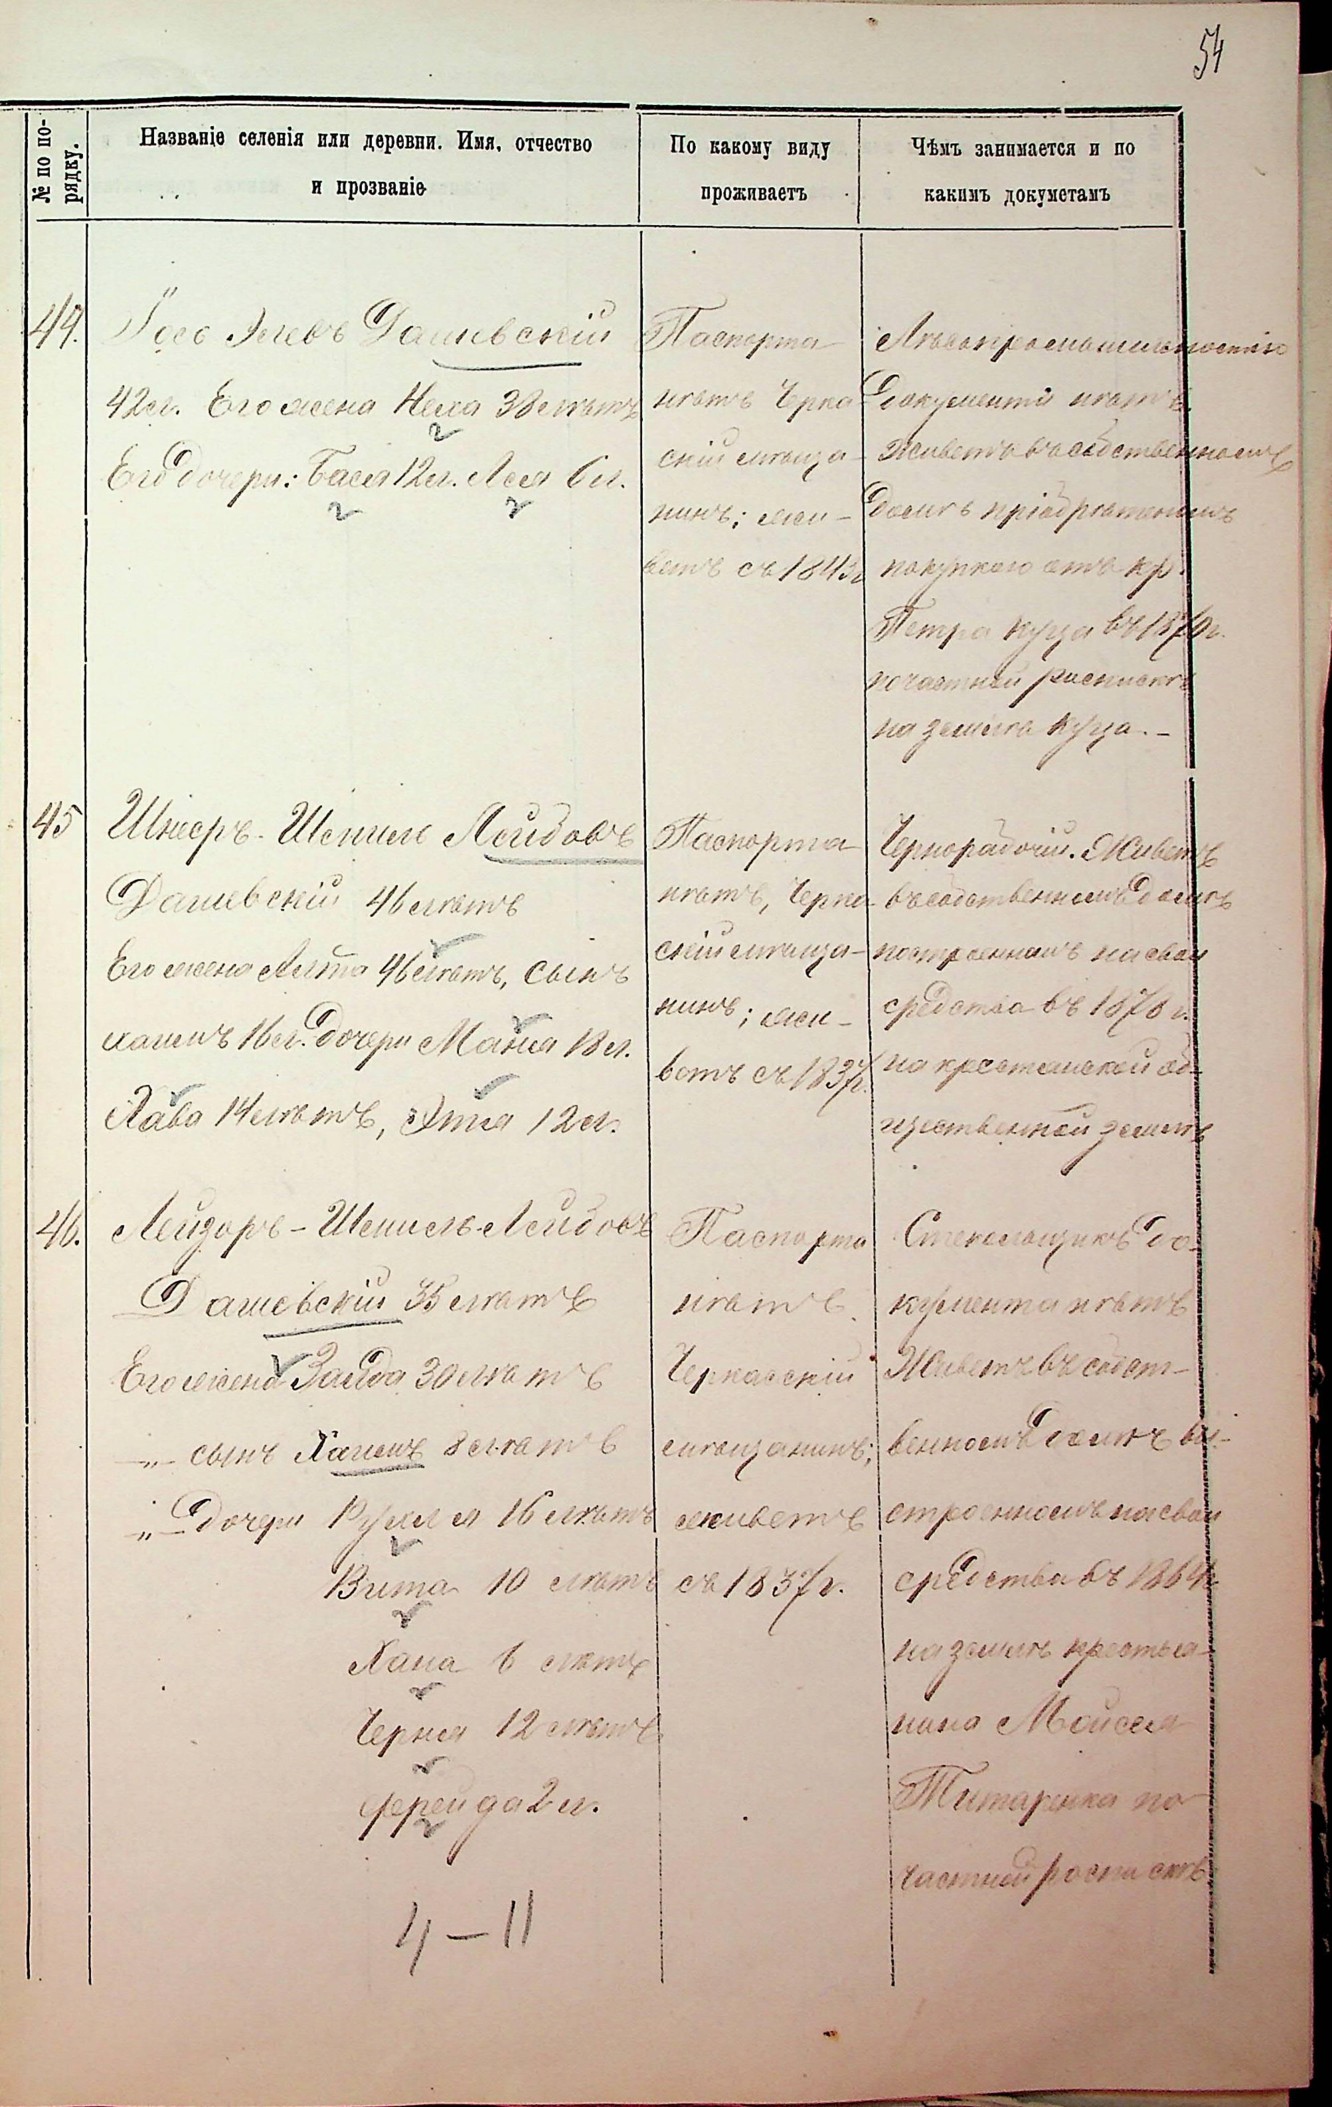 54
№ по по-
рядку.
Названіе селенія или деревни. Имя, отчество
и прозваніе
По какому виду
проживаетъ
Чѣмъ занимается и по
какимъ докуметамъ
44.
Іосо Элевъ Дашевскій
42 л. Его жена Неха 38 лѣтъ
Его дочери: Бася 12 л. Лея 6 л.
Паспорта
нѣтъ Черка-
скій мѣща-
нинъ; жи-
ветъ съ 1843 г
Лѣсопромышленностію
документа нѣтъ.
Живетъ въ собственномъ
домѣ пріобрѣтенномъ
покупкою отъ кр.
Петра Куца въ 1870 г.
по частной роспискѣ
на землѣ Куца. –
45
Шнеръ-Шепшель Лейбовъ
Дашевскій 46 лѣтъ
Его жена 46 лѣтъ, сынъ
Хаимъ 16 л. дочери Маня 18 л.
Хава 14 лѣтъ, Этя 12 л.
Паспорта
нѣтъ, Черка-
скій мѣща-
нинъ; жи-
ветъ съ 1837 г.
Чернорабочій. Живетъ
въ собственномъ домѣ
построенномъ на свои
средства въ 1878 г.
на крестьянской об-
щественной землѣ
46.
Лейзоръ-Шепшель Лейбовъ
Дашевскій 35 лѣтъ
Его жена Злада 30 лѣтъ
–„– сынъ Хаимъ 8 лѣтъ
–„– дочери Рухля 16 лѣтъ
Вита 10 лѣтъ
Хана 6 лѣтъ
Черня 12 лѣтъ
Фрейда 2 л.
Паспорта
нѣтъ
Черкасскій
мѣщанинъ;
живетъ
съ 1837 г.
Стекольщикъ до-
кумента нѣтъ
Живетъ въ собст-
венномъ домѣ вы-
строенномъ на свои
средства въ 1864 г.
на землѣ крестья-
нина Мойсея
Титаренка по
частной роспискѣ
4 – 11